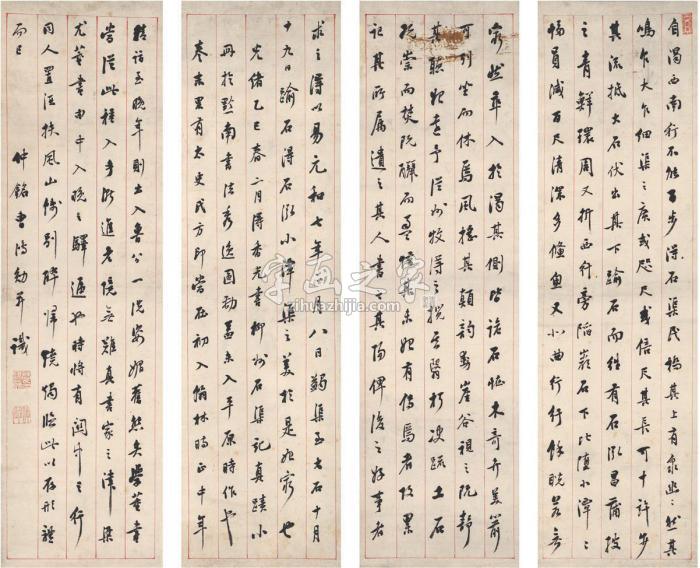 自渴西南行不能百步得石渠民橋其上有泉幽幽然其
鳴乍大乍細渠之廣或咫尺或倍尺其長可十許步
其流抵大石伏出其下踰石而往有石泓昌蒲被
之青鮮環周又折西行旁陷巖石下北墮小潭潭
幅員減百尺清深多儵魚又北曲行紆餘睨若無
窮然卒入於渴其側皆詭石怪木奇卉美箭
可列坐而休焉風搖其顛韵動崖谷視之既靜
其聽始遠予從州牧得之攬去翳朽決疏土石
既崇而焚既釃而盈惜其未始有傳焉者故累
記其所屬遺之其人書之其陽俾後之好事者
求之得以易元和七年正月八日蠲渠至大石十月
十九日踰石得石泓小潭渠之美於是始窮也
光緒乙巳春二月得香光書柳州石渠記真蹟小
冊於黔南書法秀逸圓勁蓋未入平原時作也
卷末署有太史氏方印當在初入翰林時正中年
精詣至晚年則出入魯公一洗姿媚舊態矣學董書
當從此種入手後進者無難真書家之津梁
尤董書由中入晚之驛遞也時將有關中之行
同人置酒扶風山餞別醉歸燒燭臨此以存形
而已 仲銘曹鴻勛并識
字画之家
zihuazhijia.com